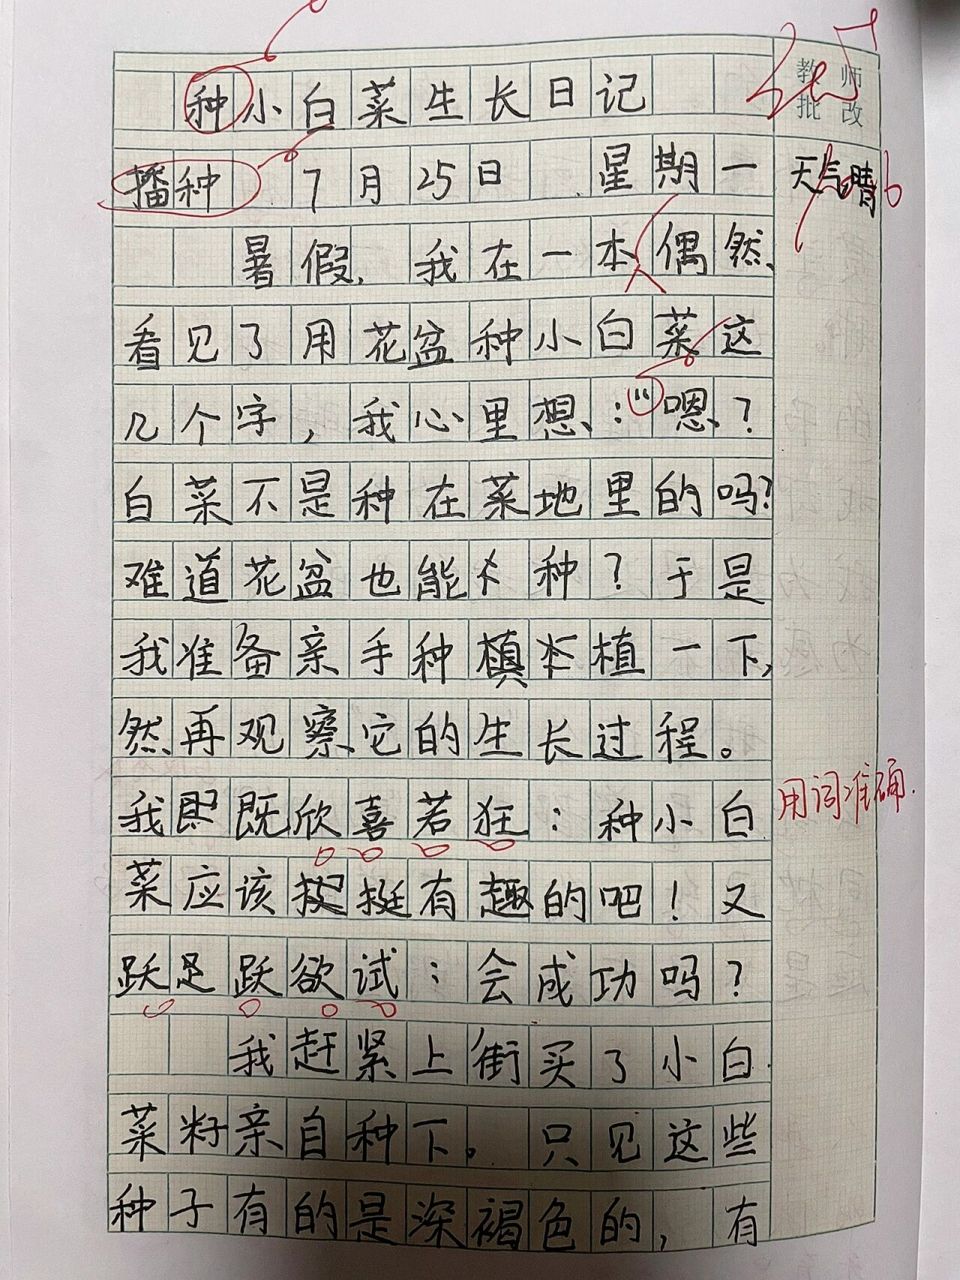 种小白菜生长日记
教师批改
播种 7月25日 星期一 天气晴
暑假,我在一本偶然
看见了用花盆种小白菜这
几个字,我心里想:"嗯?
白菜不是种在菜地里的吗?
难道花盆也能种?于是
我准备亲手种植一下,
然再观察它的生长过程。
我既欣喜若狂:种小白
用词准确.
菜应该挺有趣的吧!又
跃跃欲试:会成功吗?
我赶紧上街买了小白
菜籽亲自种下。只见这些
种子有的是深褐色的,有